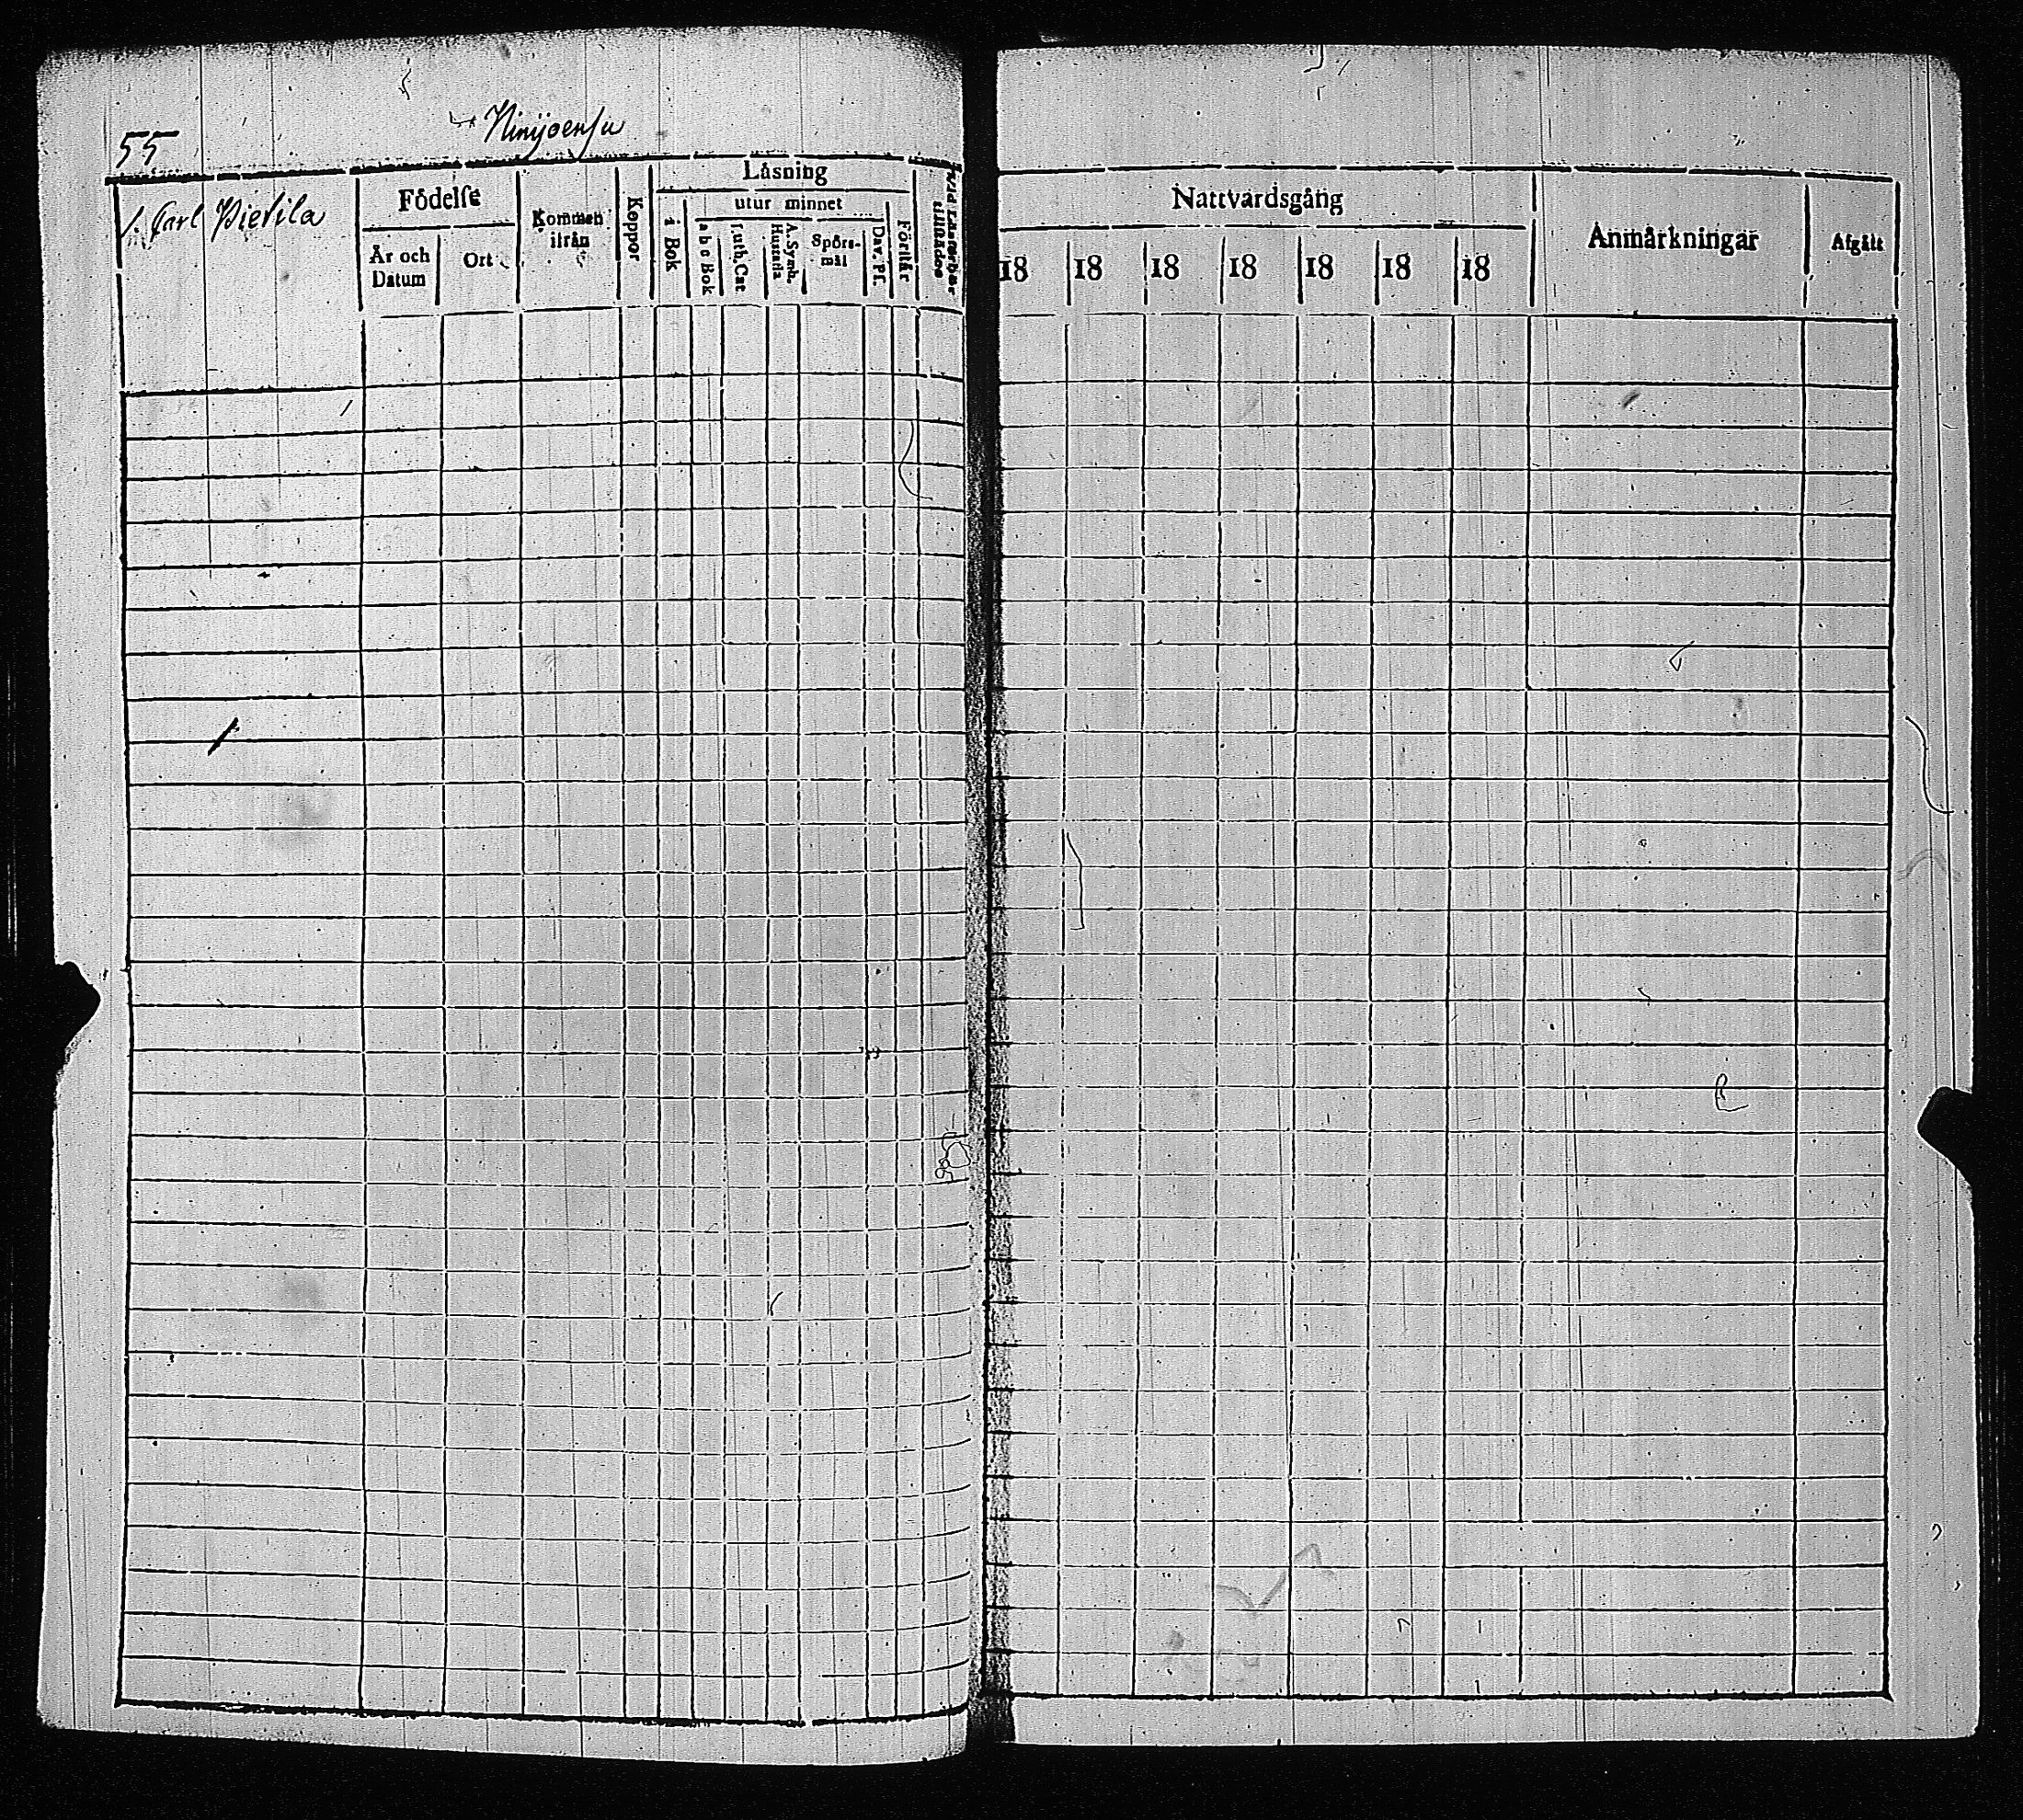 55
Ninijoensu
1. Carl Pietilä
Födelse
År och Datum
Ort
Kommen ifrån
Koppor
Läsning
i Bok
utur minnet
a b c Bok
Luth. Cat
A. Symb. Hustafla
Spörsmål
Dav. Ps.
Förstår
Nattvardsgång
18 18 18 18 18 18 18
Anmärkningar
Afgått